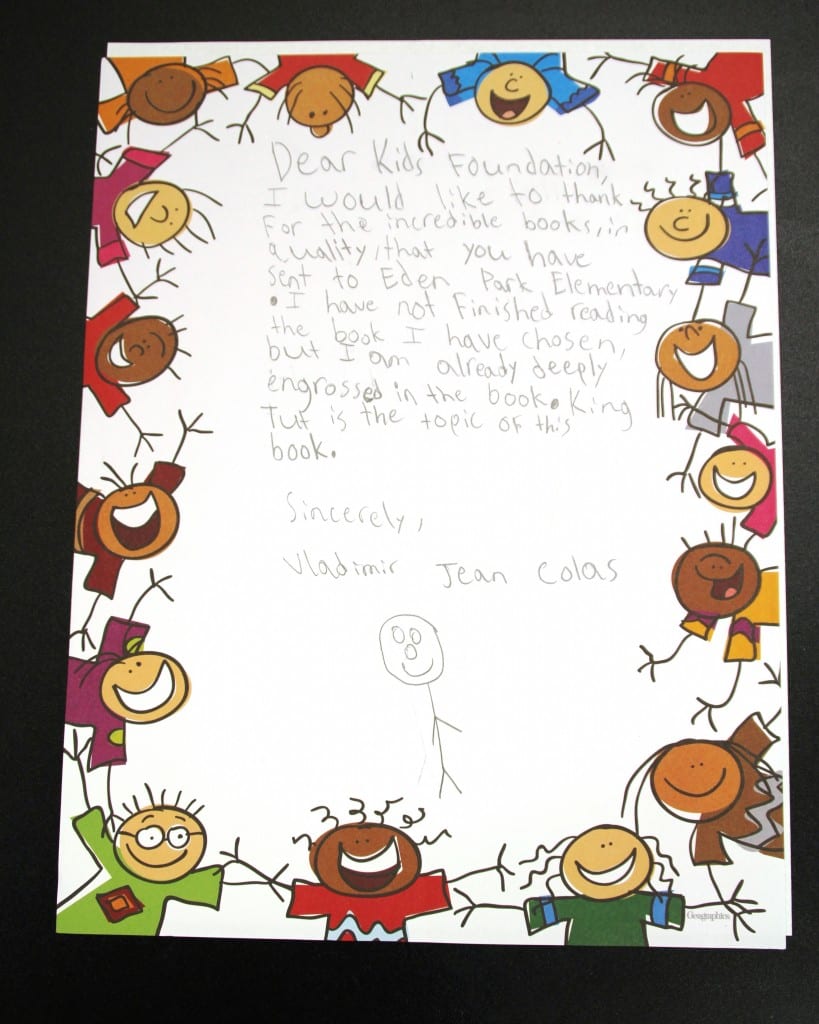 Dear Kids Foundation,
I would like to thank
For the incredible books, in
quality, that you have
sent to Eden Park Elementary
. I have not Finished reading
the book I have chosen,
but I am already deeply
engrossed in the book. King
Tut is the topic of this
book.
Sincerely,
Vladimir Jean Colas
Geographics